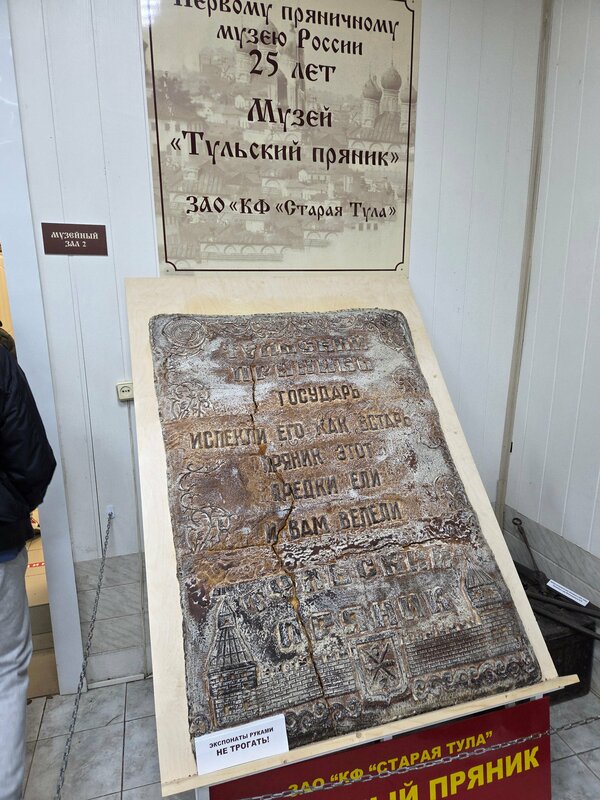 Первому пряничному
музею России
25 лет
Музей
«Тульский пряник»
ЗАО «КФ «Старая Тула»
музейный
зал 2
ГОСУДАРЬ
ИСПЕКЛИ ЕГО КАК ВСТАРЬ
ПРЯНИК ЭТОТ
ПРЕДКИ ЕЛИ
И ВАМ ВЕЛЕЛИ
ТУЛЬСКИЙ
ПРЯНИК
ЭКСПОНАТЫ РУКАМИ
НЕ ТРОГАТЬ!
ЗАО "КФ "СТАРАЯ ТУЛА"
ПРЯНИК